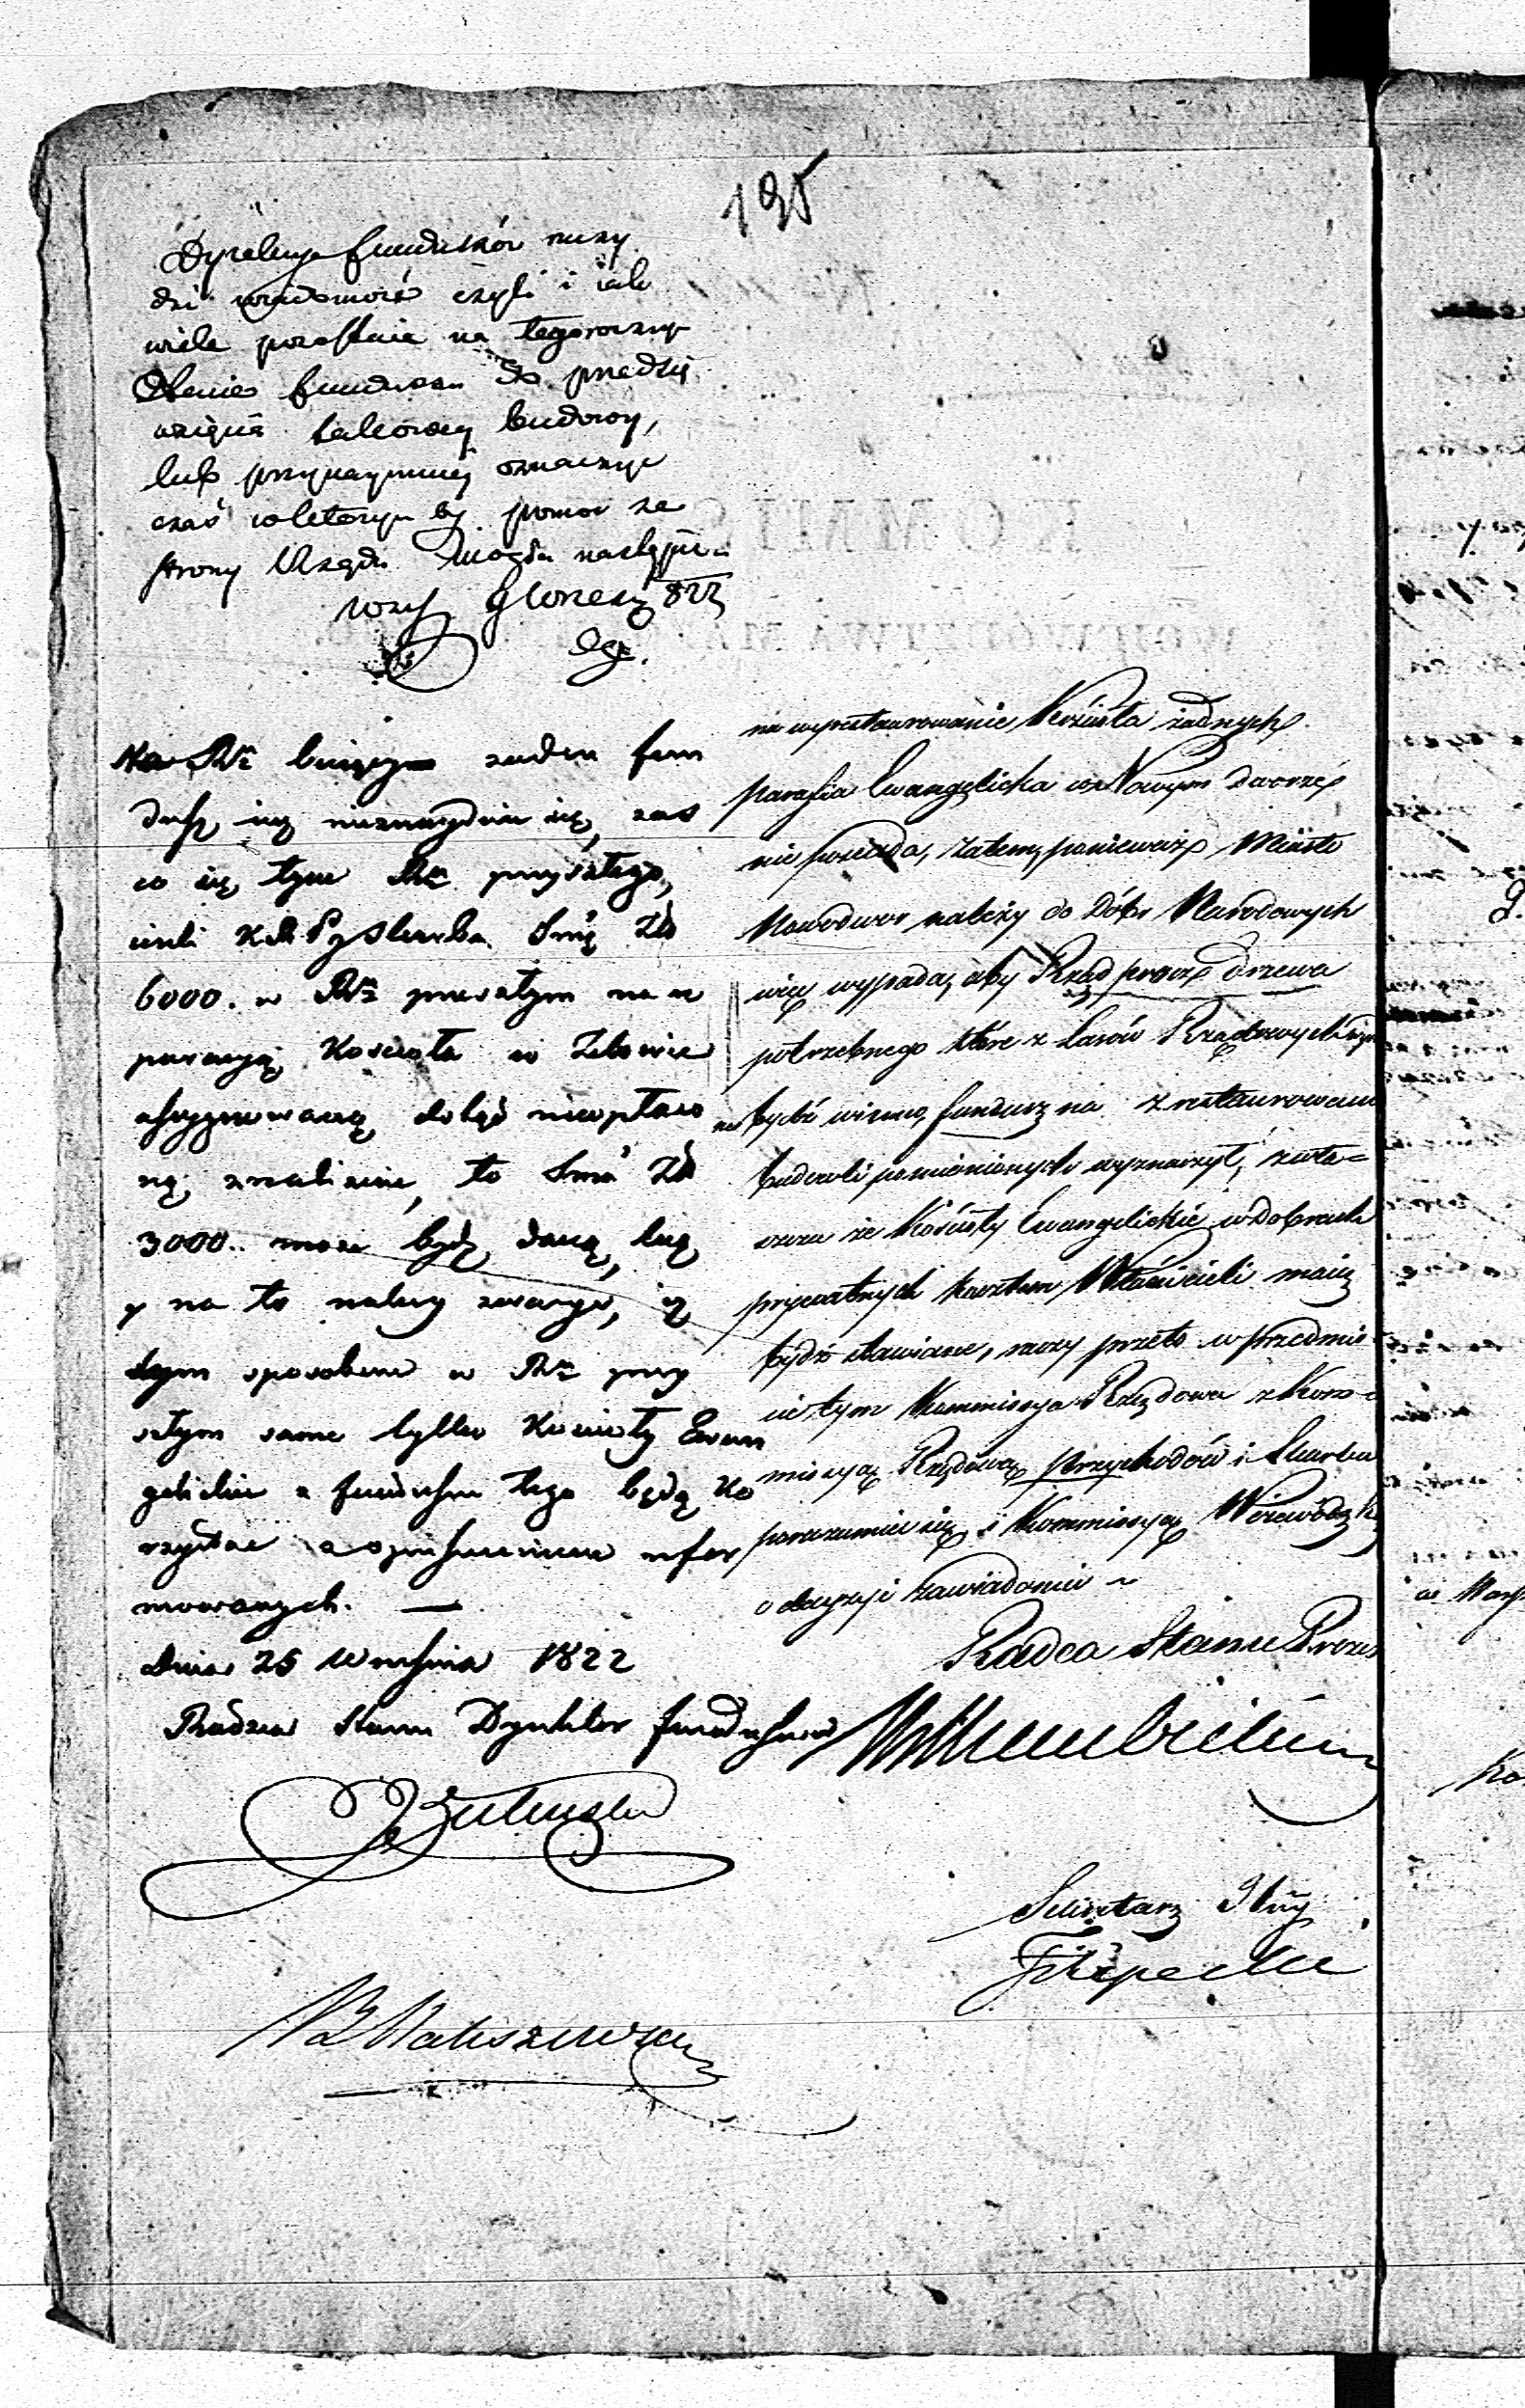 195
Dyrekcya funduszów raczy
dzi wiadomość czyli i iak
wiele pozostaie na tegoroczny
funduszu do przedsię
wzięcia takowey budowy,
lub przynaymniey oznaczyć
czas w którym by pomoc ze
strony Rządu mogła nastąpić.
822
Na Rok bieżący żaden fun
dusz iuż nieznayduie się, zaś
co się tyce Rku przyszłego,
ieśli Skarbu Sumę Zł
6000. w Rku na re
paracyą Kościoła w Zelowie
assygnowaną dotąd niewpłaco
ną zrealizuie, to Suma Zł
3000.. może bydź daną, lecz
y na to należy zważyć, iż
tym sposobem w Rku przy
szłym same tylko Kościoły Ewan
gelickie z funduszu tego będą ko
rzystać z opuszczeniem refor
mowanych. —
Dnia 25 Września 1822
Radzca Stanu Dyrektor funduszów
na wyrestaurowanie Kościoła żadnych
parafia Ewangelicka w Nowym Dworze
nie posiada, zatem, ponieważ Miasto
Nowodwor należy do Dóbr Narodowych
więc wypada, aby Rząd procz drzewa
potrzebnego które z Lasów Rządowych
bydź winno, fundusz na zrestaurowanie
budowli pomienionych wyznaczył, zwła=
szcza że Kościoły Ewangelickie w dobrach
prywatnych kosztem Właścicieli maią
bydź stawiane, raczy przeto w przedmio
cie tym Kommissya Rządowa z Kom=
missyą Rządową Przychodów i Skarbu
porozumieć się i Kommissyą Woiewódzką
o decyzyi zawiadomić ~
Radca Stanu Prezes
Sekretarz Jlny
Filipecki